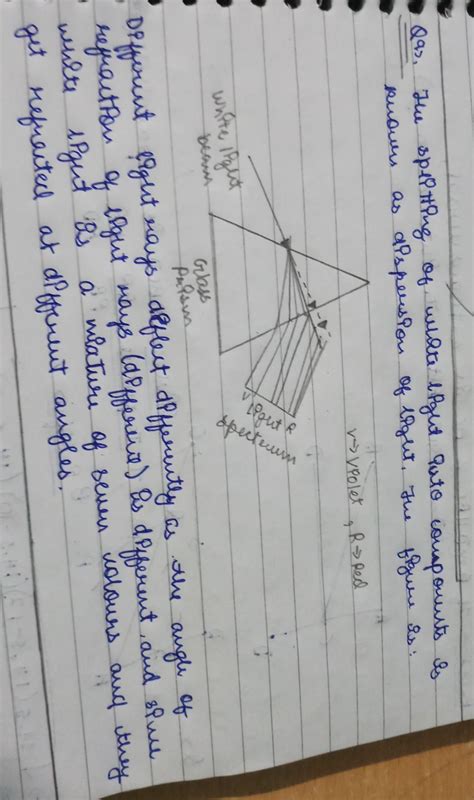 Q95. The splitting of white light into components is
known as dispersion of light. The figure is:
V→Violet, R→Red
White light
beam
Glass
Prism
V
R
light
spectrum
Different light rays deflect differently as the angle of
refraction of light rays (different) is different and since
white light is a mixture of seven colours and they
get refracted at different angles.